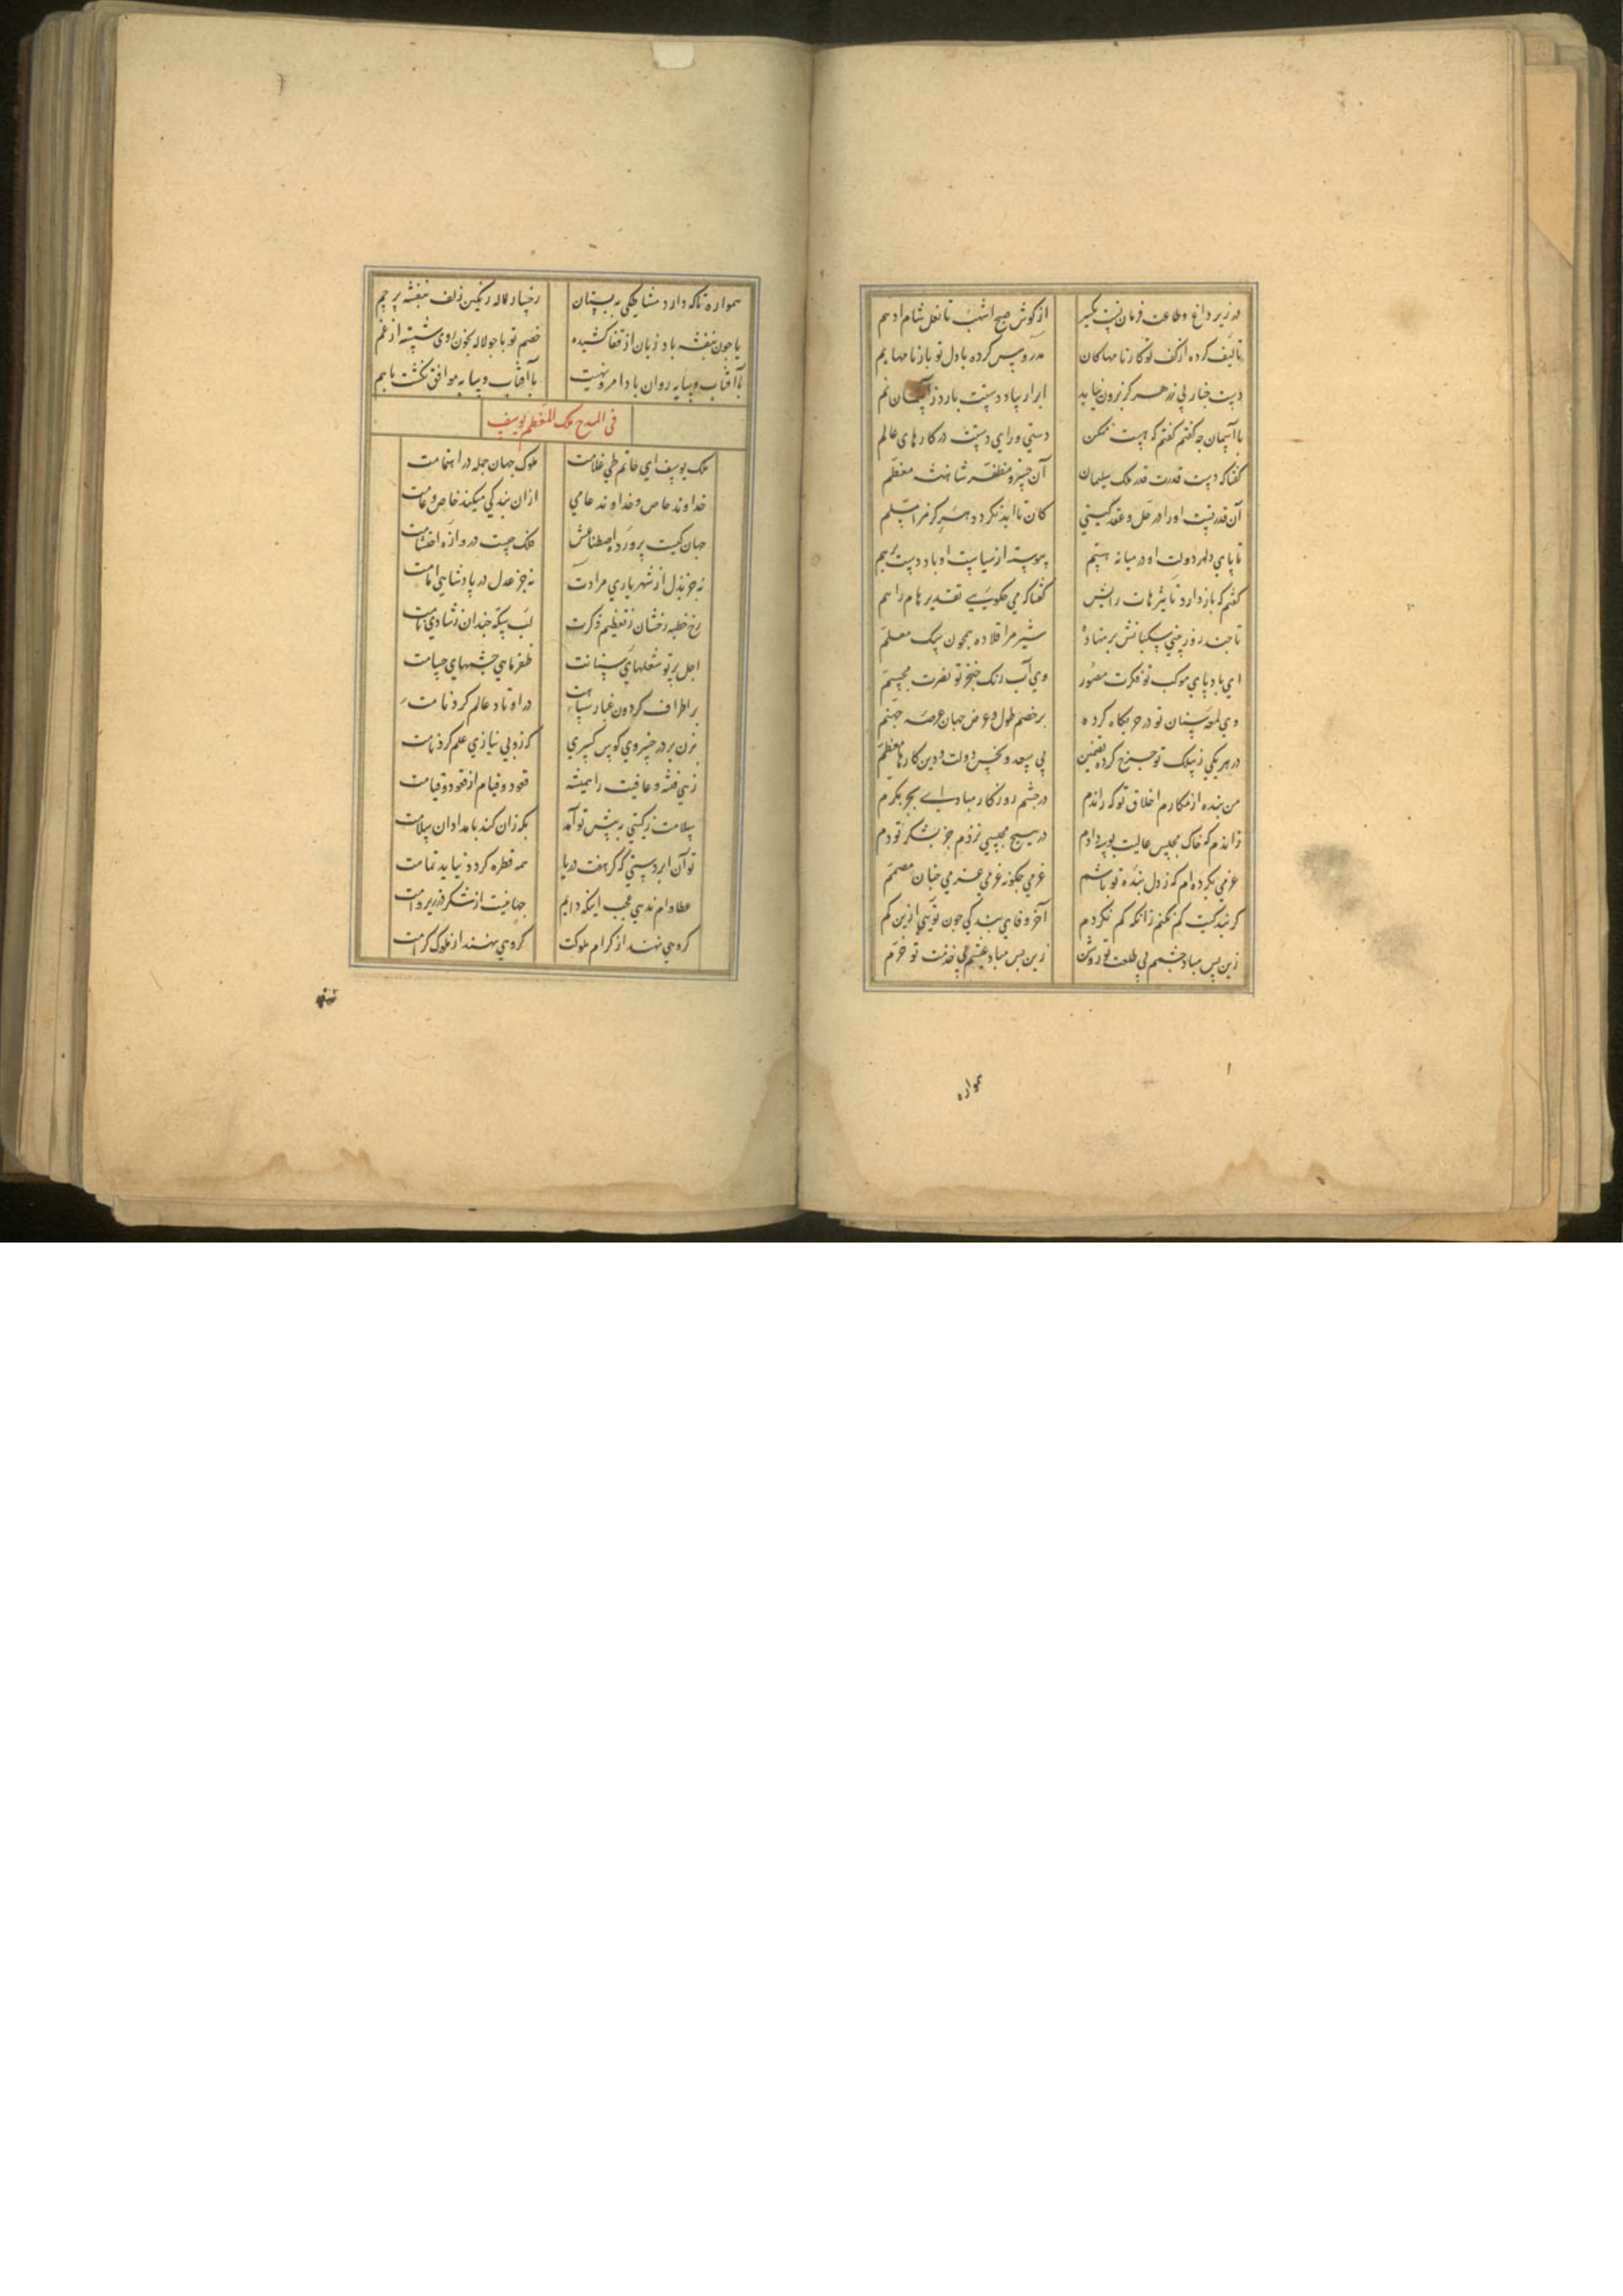 در زیر داغ و طاعت فرمان تست یکسر از کوش صبح اشهب تا نعل شام ادهم
تالیف کرده از کف تو کارنامها کان تدرو پس کرده با دل تو بارنامها یم
دست جنار بی زر هرکز برون نیاید ابر ار بیاد دستت بارد ز آسمان نم
با آسمان چه کفتم کفتم که هست ممکن دستی ورای دستت در کارهای عالم
کفتا که دست قدرت قدر ملک سلیمان آن خسرو مظفر شاهنشه معظم
آن قدر نیست او را در حل و عقد کیتی کان تا ابد نکردد هرکز مرا مسلم
تا پای دلهر دولت او در میانه هستیم پیوسته از سیاست او با دو دست برهم
کفتم که باز دارد تاثیرهات رایش کفتا که می چکویی تقدیرها هم
تا چند روز بینی سکبانش بر نهاده شیر مرا قلاده همچون سک معلم
ای باد پای موکب تو فکرت مصور وی آب رنک خنجر تو نصرت مجسم
وی لمعه سنان تو در حربکاه کرده بر خصم طول و عرض جهان عرصه جهنم
در هر یکی ز سلک تو چرخ کرده تضمین بی سعد و نحس دولت و دین کارها معظم
من بنده از مکارم اخلاق تو که راندم در چشم روزکار مبادا بجز مکرم
زاندم که خاک مجلس عالیت بوسه دادم در هیچ مجلسی نزدم جز بشکر تو دم
عزمی بکرده ام که ز دل بنده تو باشم عزمی چکونه عزمی عزمی چنان مصمم
کر بندکیت کم نکنم زانکه کم نکردم آخر وفای بندکی چون تویی ازین کم
زین پس مباد چشمم بی طلعت تو روشن زین پس مباد عیشم بی خدمت تو خرم
همواره
همواره تا که دارد مشاطکی به بستان رخسار لاله رنکین زلف بنفشه پر خم
یا چون بنفشه باد زبان از قفا کشیده خصم تو یا چو لاله بخون روی شسته از غم
با آفتاب و سایه روان باد امر و نهیت با آفتاب و سایه موافق نکشت باهم
فی المدح ملک المعظم یوسف
ملک یوسف ای حاتم طی غلامت ملوک جهان جمله در اهتمامت
خداوند خاص و خداوند عامی ازان بندکی میکند خاص و عامت
جهان کیست پرورده اصطناعش فلک چیست دروازه احتشامت
نه جز بذل از شهریاری مرادت نه جز عدل در پادشاهی امامت
رخ خطبه رخشان ز تعظیم ذکرت لب سکه خندان ز شادی نامت
اجل پرتو شعلهای سنانت ظفر ماهی چشمهای حسامت
بر اطراف کردون غبار سپاهت در اوتاد عالم کرد نامت
بزن بر در خسروی کوس کسری که زوبی نیازی علم کرد نامت
زنی فتنه و عافیت را همیشه قعود و قیام از قعود و قیامت
سلامت ز کیتی به پیش تو آمد بکه زان کند بامدادان سلامت
تو آن ابر دستی که کر هفت دریا همه قطره کردد نیاید تمامت
عطا وام ندهی عجب اینکه دایم جهانیست از شکر در زیر وامت
کروهی نهند از کرام ملوکت کروهی نهند از ملوک کرامت